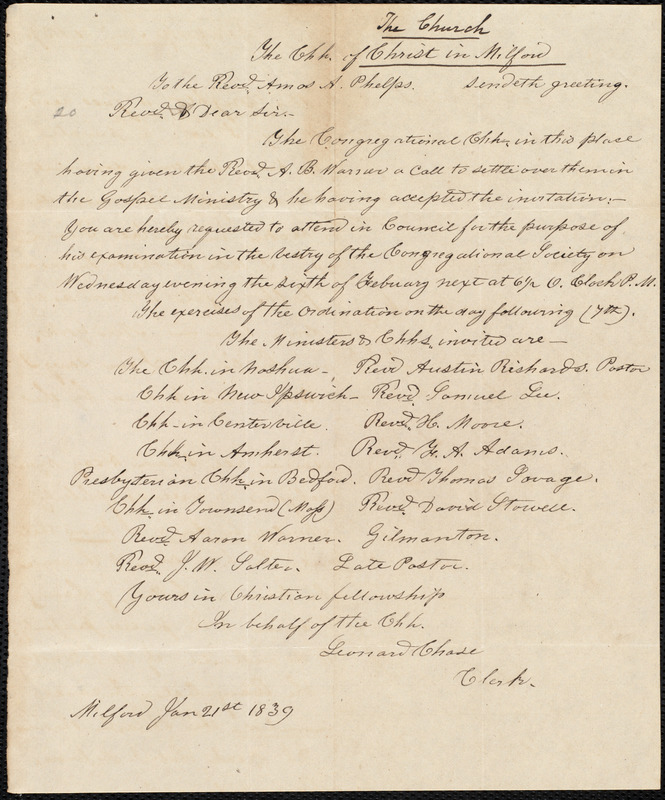 The Church
The Chh. of Christ in Milford
To the Revd. Amos A. Phelps. Sendeth greeting.
20 Revd. & Dear Sir.-
The Congregational Chh. in this place
having given the Revd. A. B. Warner a Call to settle over them in
the Gospel Ministry & he having accepted the invitation:-
You are hereby requested to attend in Council for the purpose of
his examination in the vestry of the Congregational Society on
Wednesday evening the sixth of Febuary next at 6½ O. Clock P.M.
The exercises of the Ordination on the day following (7th).
The Ministers & Chhs. invited are-
The Chh. in Nashua- Revd Austin Richards. Pastor
Chh in New Ipswich- Revd. Samuel Lee.
Chh- in Centerville. Revd. H. Moore.
Chh. in Amherst. Revd. F. A. Adams.
Presbyterian Chh. in Bedford. Revd Thomas Savage.
Chh. in Townsend (Mass) Revd. David Stowell.
Revd. Aaron Warner. Gilmanton.
Revd. J. W. Salter. Late Pastor.
Yours in Christian fellowship
In behalf of the Chh.
Leonard Chase
Clerk.
Milford Jan 21st 1839